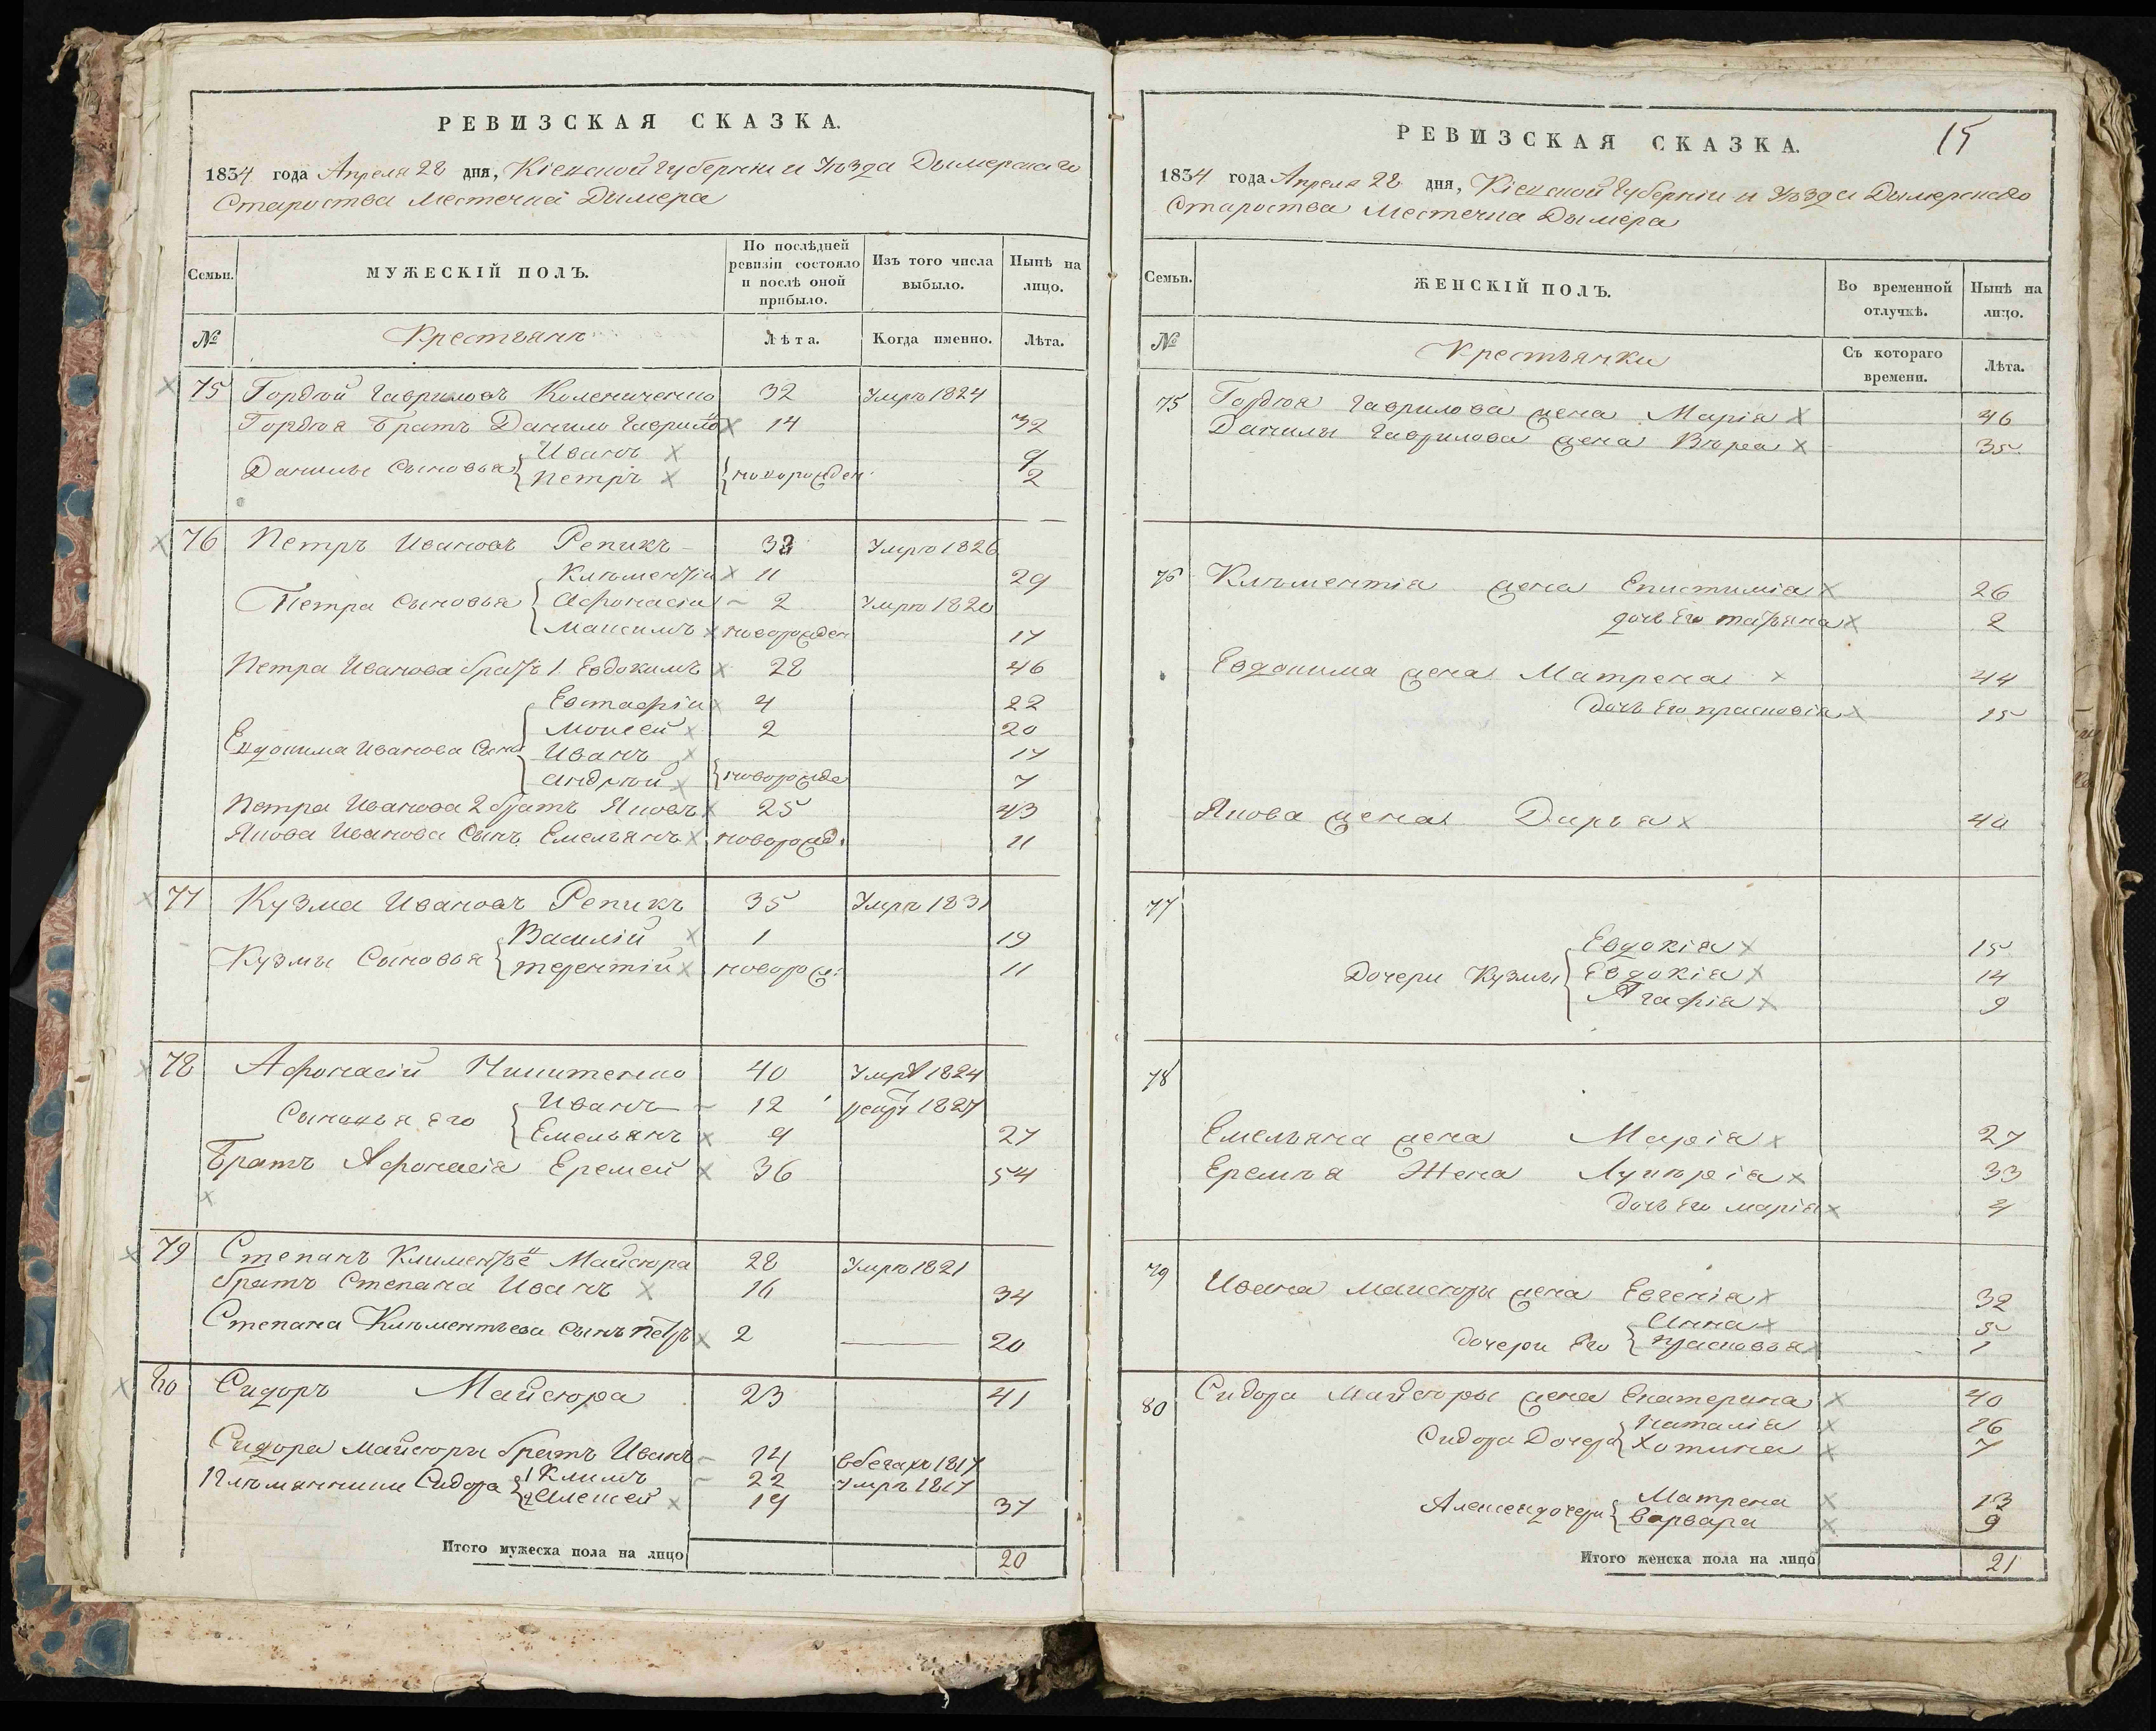 РЕВИЗСКАЯ СКАЗКА.
1834 года Апреля 28 дня, Кіевской Губерніи и Уѣзда Дымерскаго
Староства Местечка Дымера
Семьи.
МУЖЕСКІЙ ПОЛЪ.
По послѣдней ревизіи состояло и послѣ оной прибыло.
Изъ того числа выбыло.
Нынѣ на лицо.
№
Крестьянъ
Лѣта.
Когда именно.
Лѣта.
75 Гордѣй Гавриловъ Колениченко 32 Умрѣ 1824
Гордѣя Братъ Данило Гаврило х 14 32
Данилы Сыновья { Иванъ х 9
Петръ х { новорожден: 2
76 Петръ Ивановъ Репикъ 33 Умрѣ 1826
Петра Сыновья { Клѣментій х 11 29
Афонасій – 2 Умрѣ 1820
Максимъ х новорожден 17
Петра Иванова братъ 1. Евдокимъ х 28 46
Евдокима Иванова Сыно { Евстафій х 4 22
Моисей х 2 20
Иванъ х 17
Андрѣй х { новорожде 7
Петра Иванова 2 братъ Яковъ х 25 43
Якова Иванова Сынъ Емельянъ х новорожд. 11
77 Кузма Ивановъ Репикъ 35 Умрѣ 1831
Кузмы Сыновья { Василій х 1 19
Терентій х новорож: 11
78 Афонасій Никитенко 40 Умрѣ 1824
Сыновья Его { Иванъ – 12 рекр 1827
Емельянъ х 9 27
Братъ Афонасія Еремей х 36 54
х
79 Степанъ Климентьё Майсюра 28 Умрѣ 1821
братъ Степана Иванъ х 16 34
Степана Клѣментьева Сынъ Петръ х 2 — 20
80 Сидоръ Майсюра 23 41
Сидора Майсюры братъ Иванъ – 14 вбегахъ 1817
Плѣмянники Сидора { 1 Климъ – 22 Умрѣ 1817
2 Алексей х 19 37
Итого мужеска пола на лицо 20
15
РЕВИЗСКАЯ СКАЗКА.
1834 года Апреля 28 дня, Кіевской Губерніи и Уѣзда Дымерскаго
Староства Местечка Дымера
Семьи.
ЖЕНСКІЙ ПОЛЪ.
Во временной отлучкѣ.
Нынѣ на лицо.
№
Крестьянки
Съ котораго времени.
Лѣта.
75 Гордѣя Гаврилова жена Марія х 46
Данилы Гаврилова жена Вѣра х 35
76 Клѣментія жена Епистимія х 26
дочь Его татьяна х 2
Евдокима жена Матрена х 44
дочь Его прасковія х 15
Якова жена Дарья х 40
77
Дочери Кузмы { Евдокія х 15
Евдокія х 14
Агафія х 9
78
Емельяна жена Марія х 27
Еремѣя Жена Лукѣрія х 33
дочь Его марія х 4
79 Ивана Майсюры жена Евгенія х 32
дочери Его { Анна х 5
прасковья х 1
80 Сидора Майсюры жена Екатерина х 40
Сидора Дочери { Наталія х 16
Хотина х 7
Алексея дочери { Матрена х 13
Варвара х 9
Итого женска пола на лицо 21